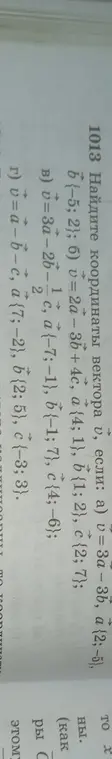 1013 Найдите координаты вектора v⃗, если: а) v⃗=3a⃗−3b⃗, a⃗{2;−5},
b⃗{−5; 2}; б) v⃗=2a⃗−3b⃗+4c⃗, a⃗{4; 1}, b⃗{1; 2}, c⃗{2; 7};
в) v⃗=3a⃗−2b⃗−1/2c⃗, a⃗{−7;−1}, b⃗{−1; 7}, c⃗{4;−6};
г) v⃗=a⃗−b⃗−c⃗, a⃗{7;−2}, b⃗{2; 5}, c⃗{−3; 3}.
то x
ны.
(как
ры
этом